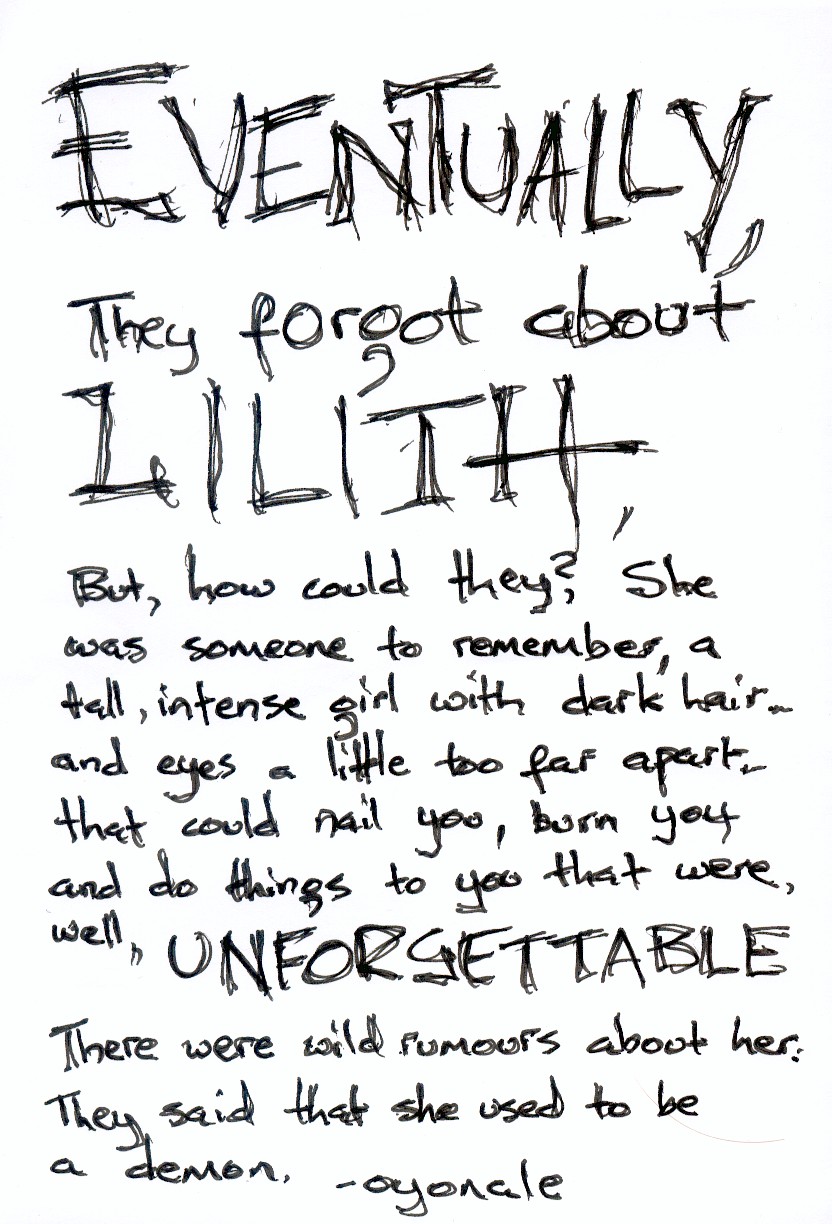 EVENTUALLY,
They forgot about
LILITH,
But, how could they? She
was someone to remember, a
tall, intense girl with dark hair...
and eyes a little too far apart...
that could nail you, burn you
and do things to you that were,
well, UNFORGETTABLE
There were wild rumours about her.
They said that she used to be
a demon. -oyonale